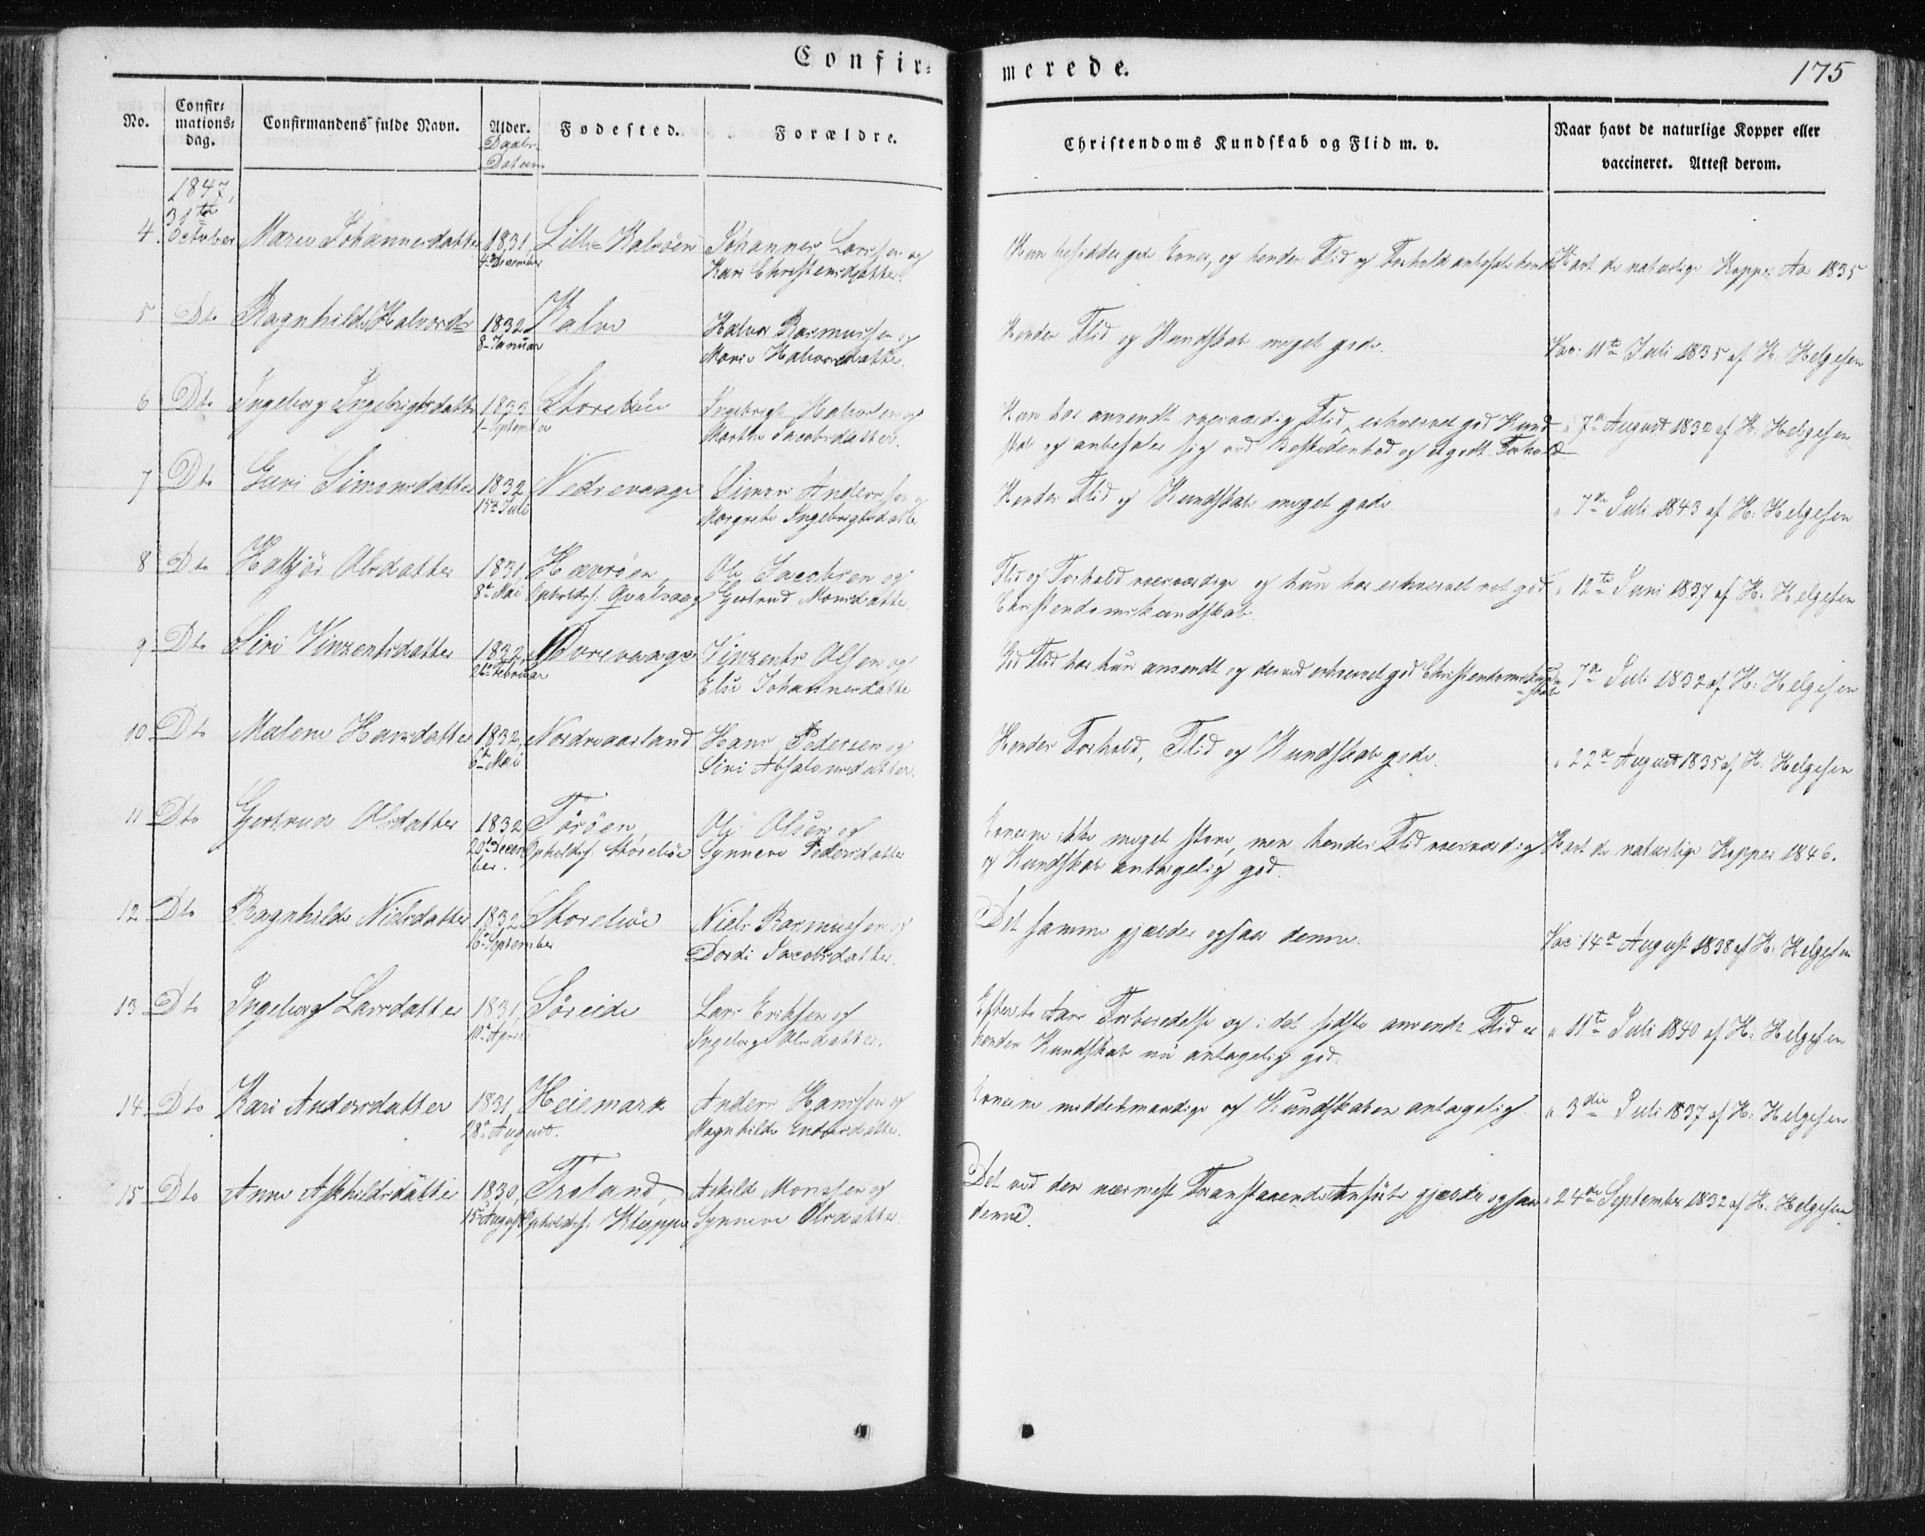 Confir= merede. 175
No. Confir= mations= dag. Confirmandens fulde Navn. Alder. Daabs Datum Fødested. Forældre. Christendoms Kundskab og Flid m. v. Naar havt de naturlige Kopper eller vaccineret. Attest derom.
1847,
31te
4 October Mari Johannesdatter 1831 Lille Kalvöen Johannes Larsen og Hun besidder gode Evner, og hendes Flid og Forhold anbefale hende Havt de naturlige Kopper Ao 1835
4de December Kari Christensdatter
5 Dto Ragnhilde Halvorsd= 1832 Kalve Halvor Rasmussen og Hendes Flid og Kundskab meget gode.
8de Januar Mari Halvorsdatter. Vac: 11te Juli 1835 af H: Helgesen
6 Dto Ingeborg Ingebrigtsdatter 1833 Storeböe Ingebrigt Halvorsen og Hun har anvendt roesværdig Flid, erhvervet god Kund
1 September Martha Jacobsdatter. skab og anbefaler sig ved Beskedenhed og et godt Forhold " 7de August 1832 af H: Helgesen
7 Dto Guri Simonsdatter 1832 Nedrevaage Simon Andersen og Hendes Flid og Kundskab meget gode " 7de Juli 1843 af H: Helgesen
15de Juli Margrete Ingebrigtsdatter
8 Dto Olsdatter 1831 Havröen, Ole Jacobsen og Flid og Forhold roesværdige og hun har erhvervet ret god " 12te Juni 1837 af H: Helgesen
8de Mai Opholdss: Gertrud Monsdatter Christendomskundskab.
9 Dto Siri Vinzentsdatter 1832 Vinzents Olsen og God Flid har hun anvendt og derved erhvervet god Christendomskund= " 7de Juli 1832 af H: Helgesen
26de Februar Johannesdatter =skab
10 Dto Malene Hansdatter 1832 Nordvaarland Hans Pedersen og Hendes Forhold, Flid og Kundskab gode. " 22de August 1835 af H: Helgesen
6te Mai Siri Absalonsdatter.
11 Dto Gjertrud Olsdatter 1832 Toröen, Ole Olsen og Evnerne ikke meget store, men hendes Flid roesværdig Havt de naturlige Kopper 1846.
20de Decem Opholdss: Storeböe Synneve Pedersdatter og Kundskab antagelig god.
ber.
12 Dto Ragnhilde Nielsdatter 1832 Storeböe Niels Rasmussen og Det samme gjælder ogsaa denne.
16de September Dordi Jacobsdatter. Vac: 14de August 1838 af H: Helgesen
13 Dto Ingeborg Larsdatter 1831 Söreide Lars Eriksen og Efter to Aars Forberedelse og i det sidste anvendt Flid er " 11te Juli 1840 af H: Helgesen
10de April Ingeborg Olsdatter. hendes Kundskab nu antagelig god.
14 Dto Kari Andersdatter 1831 Heiemark Anders Hansen og Evnerne middelmaadige og Kundskaben antagelig " 3die Juli 1837 af H: Helgesen
28de August. Magnhilde
15 Dto Anne Askhildsdatter 1830, Troland, Askild Monssen og Det ved den nærmest Foranstaaende Anförte gjælder ogsaa " 24de September 1832 af H: Helgesen
15de August Opholdss: Kleppe Synneve Olsdatter. denne.